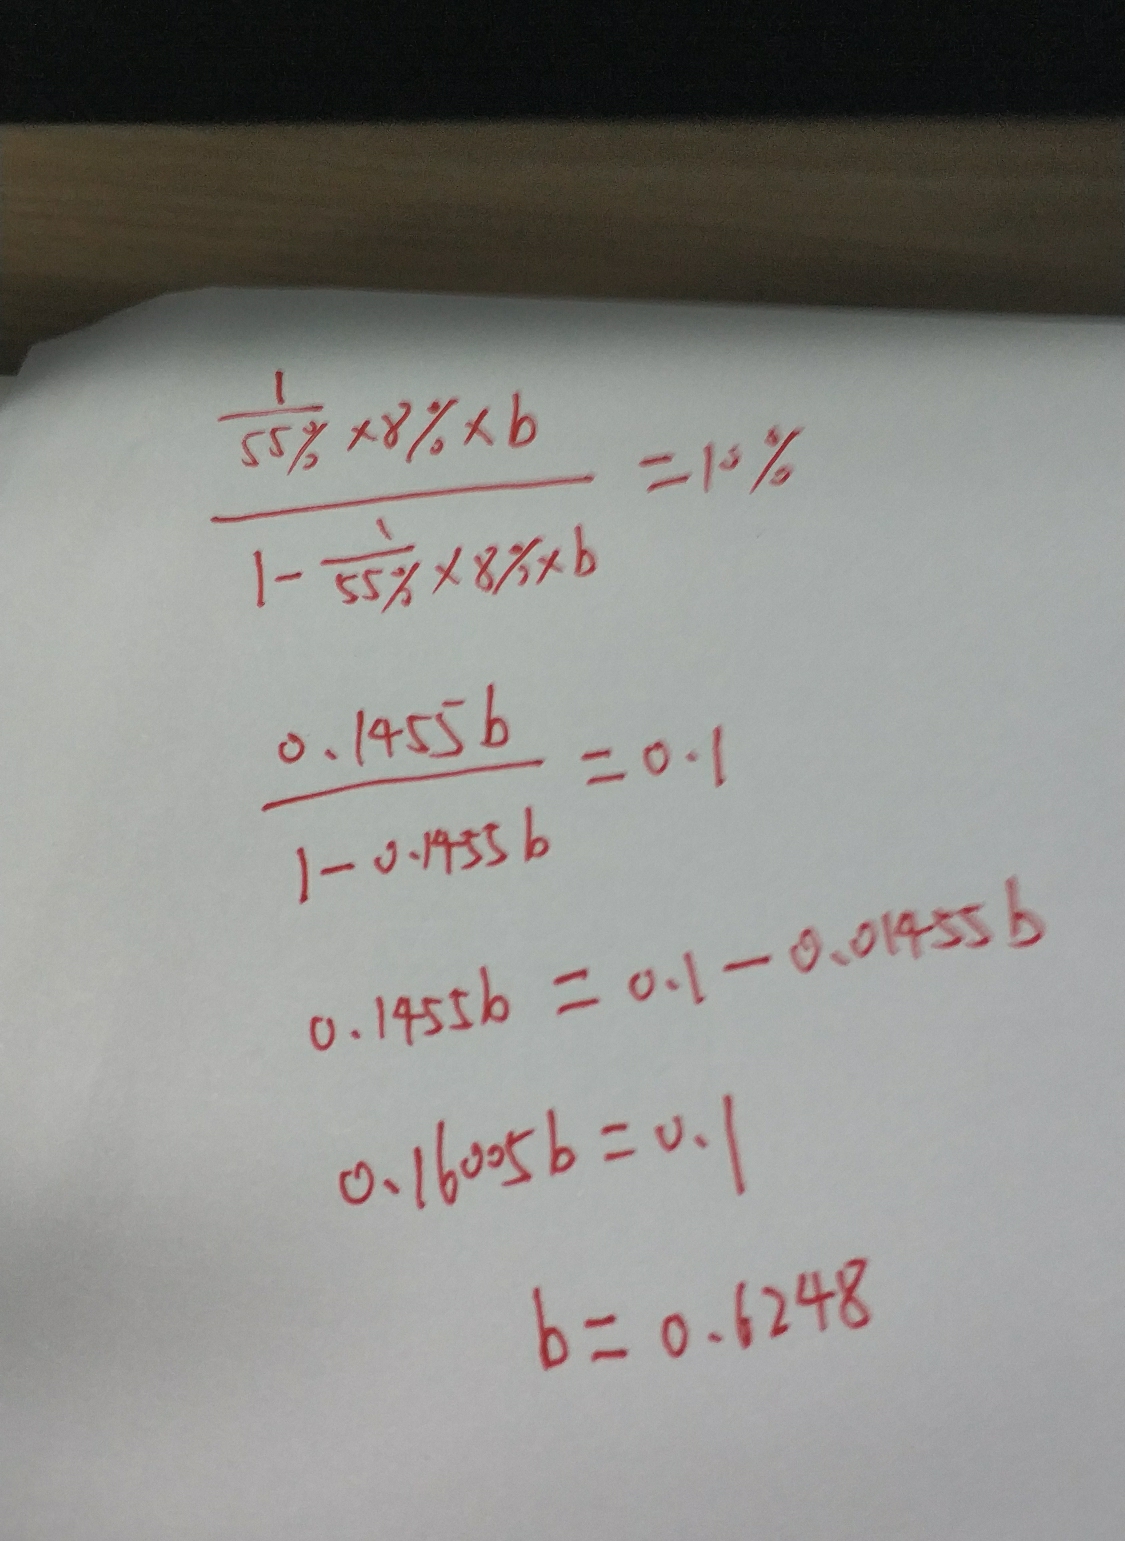 1/55% × 8% × b / 1 - 1/55% × 8% × b = 10%
0.1455b / 1 - 0.1455b = 0.1
0.1455b = 0.1 - 0.01455b
0.16005b = 0.1
b = 0.6248